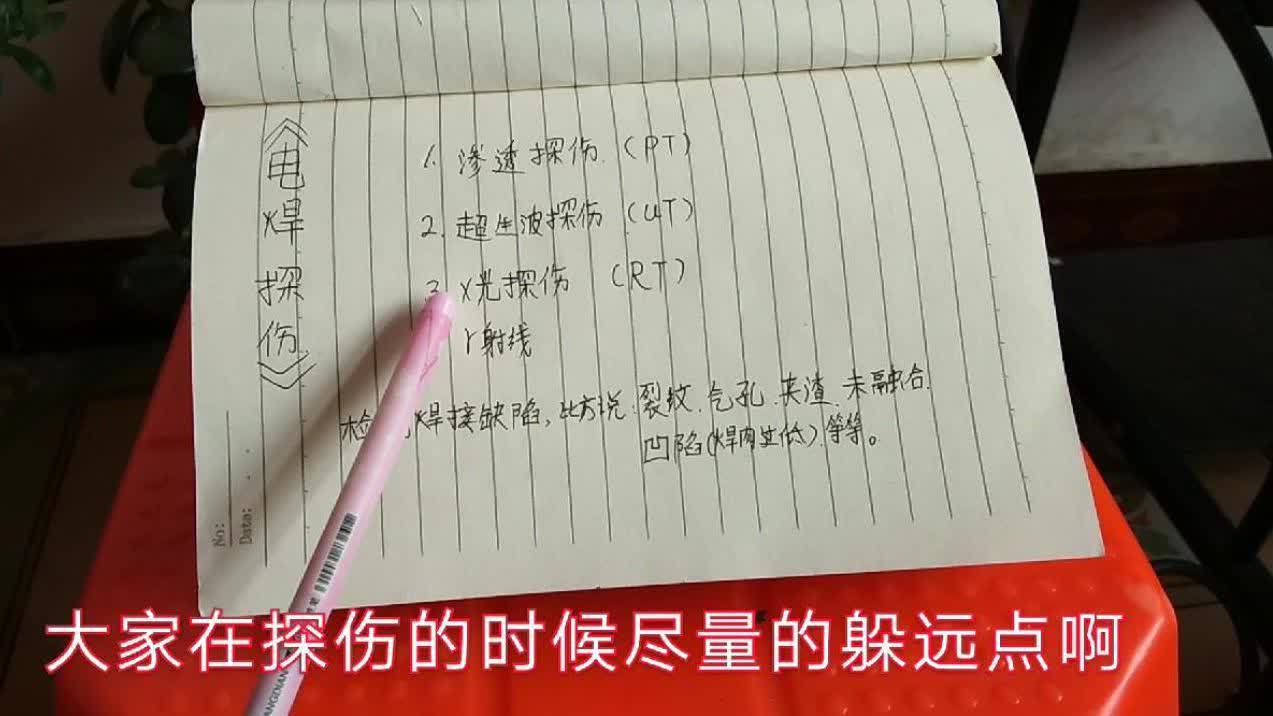 《电焊探伤》
1. 渗透探伤.（PT）
2. 超生波探伤（UT）
3. X光探伤（RT）
r射线
检 焊接缺陷，比方说：裂纹.气孔.夹渣.未融合.
凹陷（焊肉过低）等等。
No:
Data:
大家在探伤的时候尽量的躲远点啊